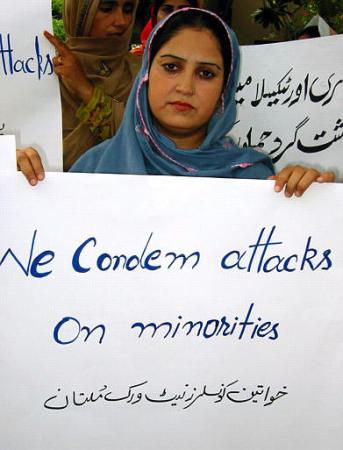 ttacks
ری اور ٹیکسلا میں
شت گرد حملو
We Condem attacks
On minorities
خواتین کونسلرز نیٹ ورک ملتان